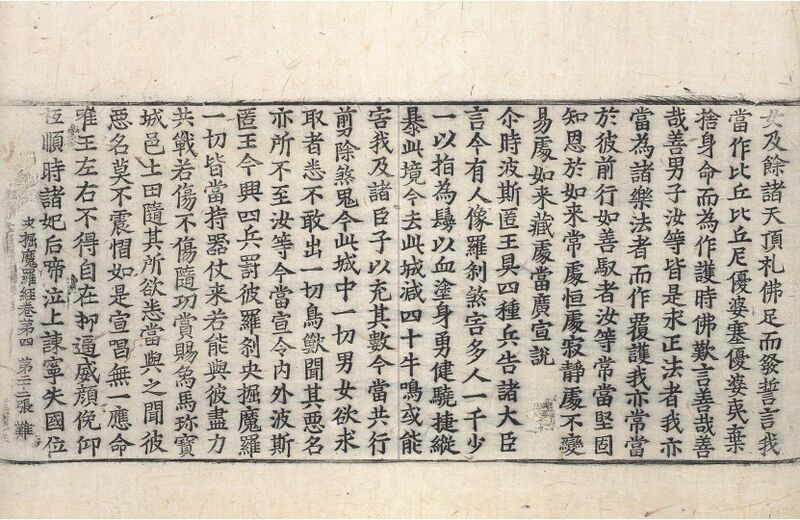 女及餘諸天頂礼佛足而發誓言我
當作比丘比丘尼優婆塞優婆夷棄
捨身命而為作護時佛歎言善哉善
哉善男子汝等皆是求正法者我亦
當為諸樂法者而作覆護我亦常當
於彼前行如善馭者汝等常當堅固
知恩於如来常處恒處寂靜處不變
易處如来藏處當廣宣說
尒時波斯匿王具四種兵告諸大臣
言今有人像羅刹煞害多人一千少
一以指為鬘以血塗身勇健駿捷縱
暴此境今去此城減四十牛鳴或能
害我及諸臣子以充其數今當共行
剪除煞鬼今此城中一切男女欲求
取者悉不敢出一切鳥獸聞其惡名
亦所不至汝等今當宣令内外波斯
匿王今興四兵罰彼羅刹央掘魔羅
一切皆當持器仗来若能與彼盡力
共戰若傷不傷隨功賞賜象馬珎寶
城邑土田隨其所欲悉當與之聞彼
惡名莫不震慴如是宣唱無一應命
唯王左右不得自在抑逼威顏俛仰
央掘魔羅経卷第四 第二十二張 難
順時諸妃后啼泣上諫寧失國位